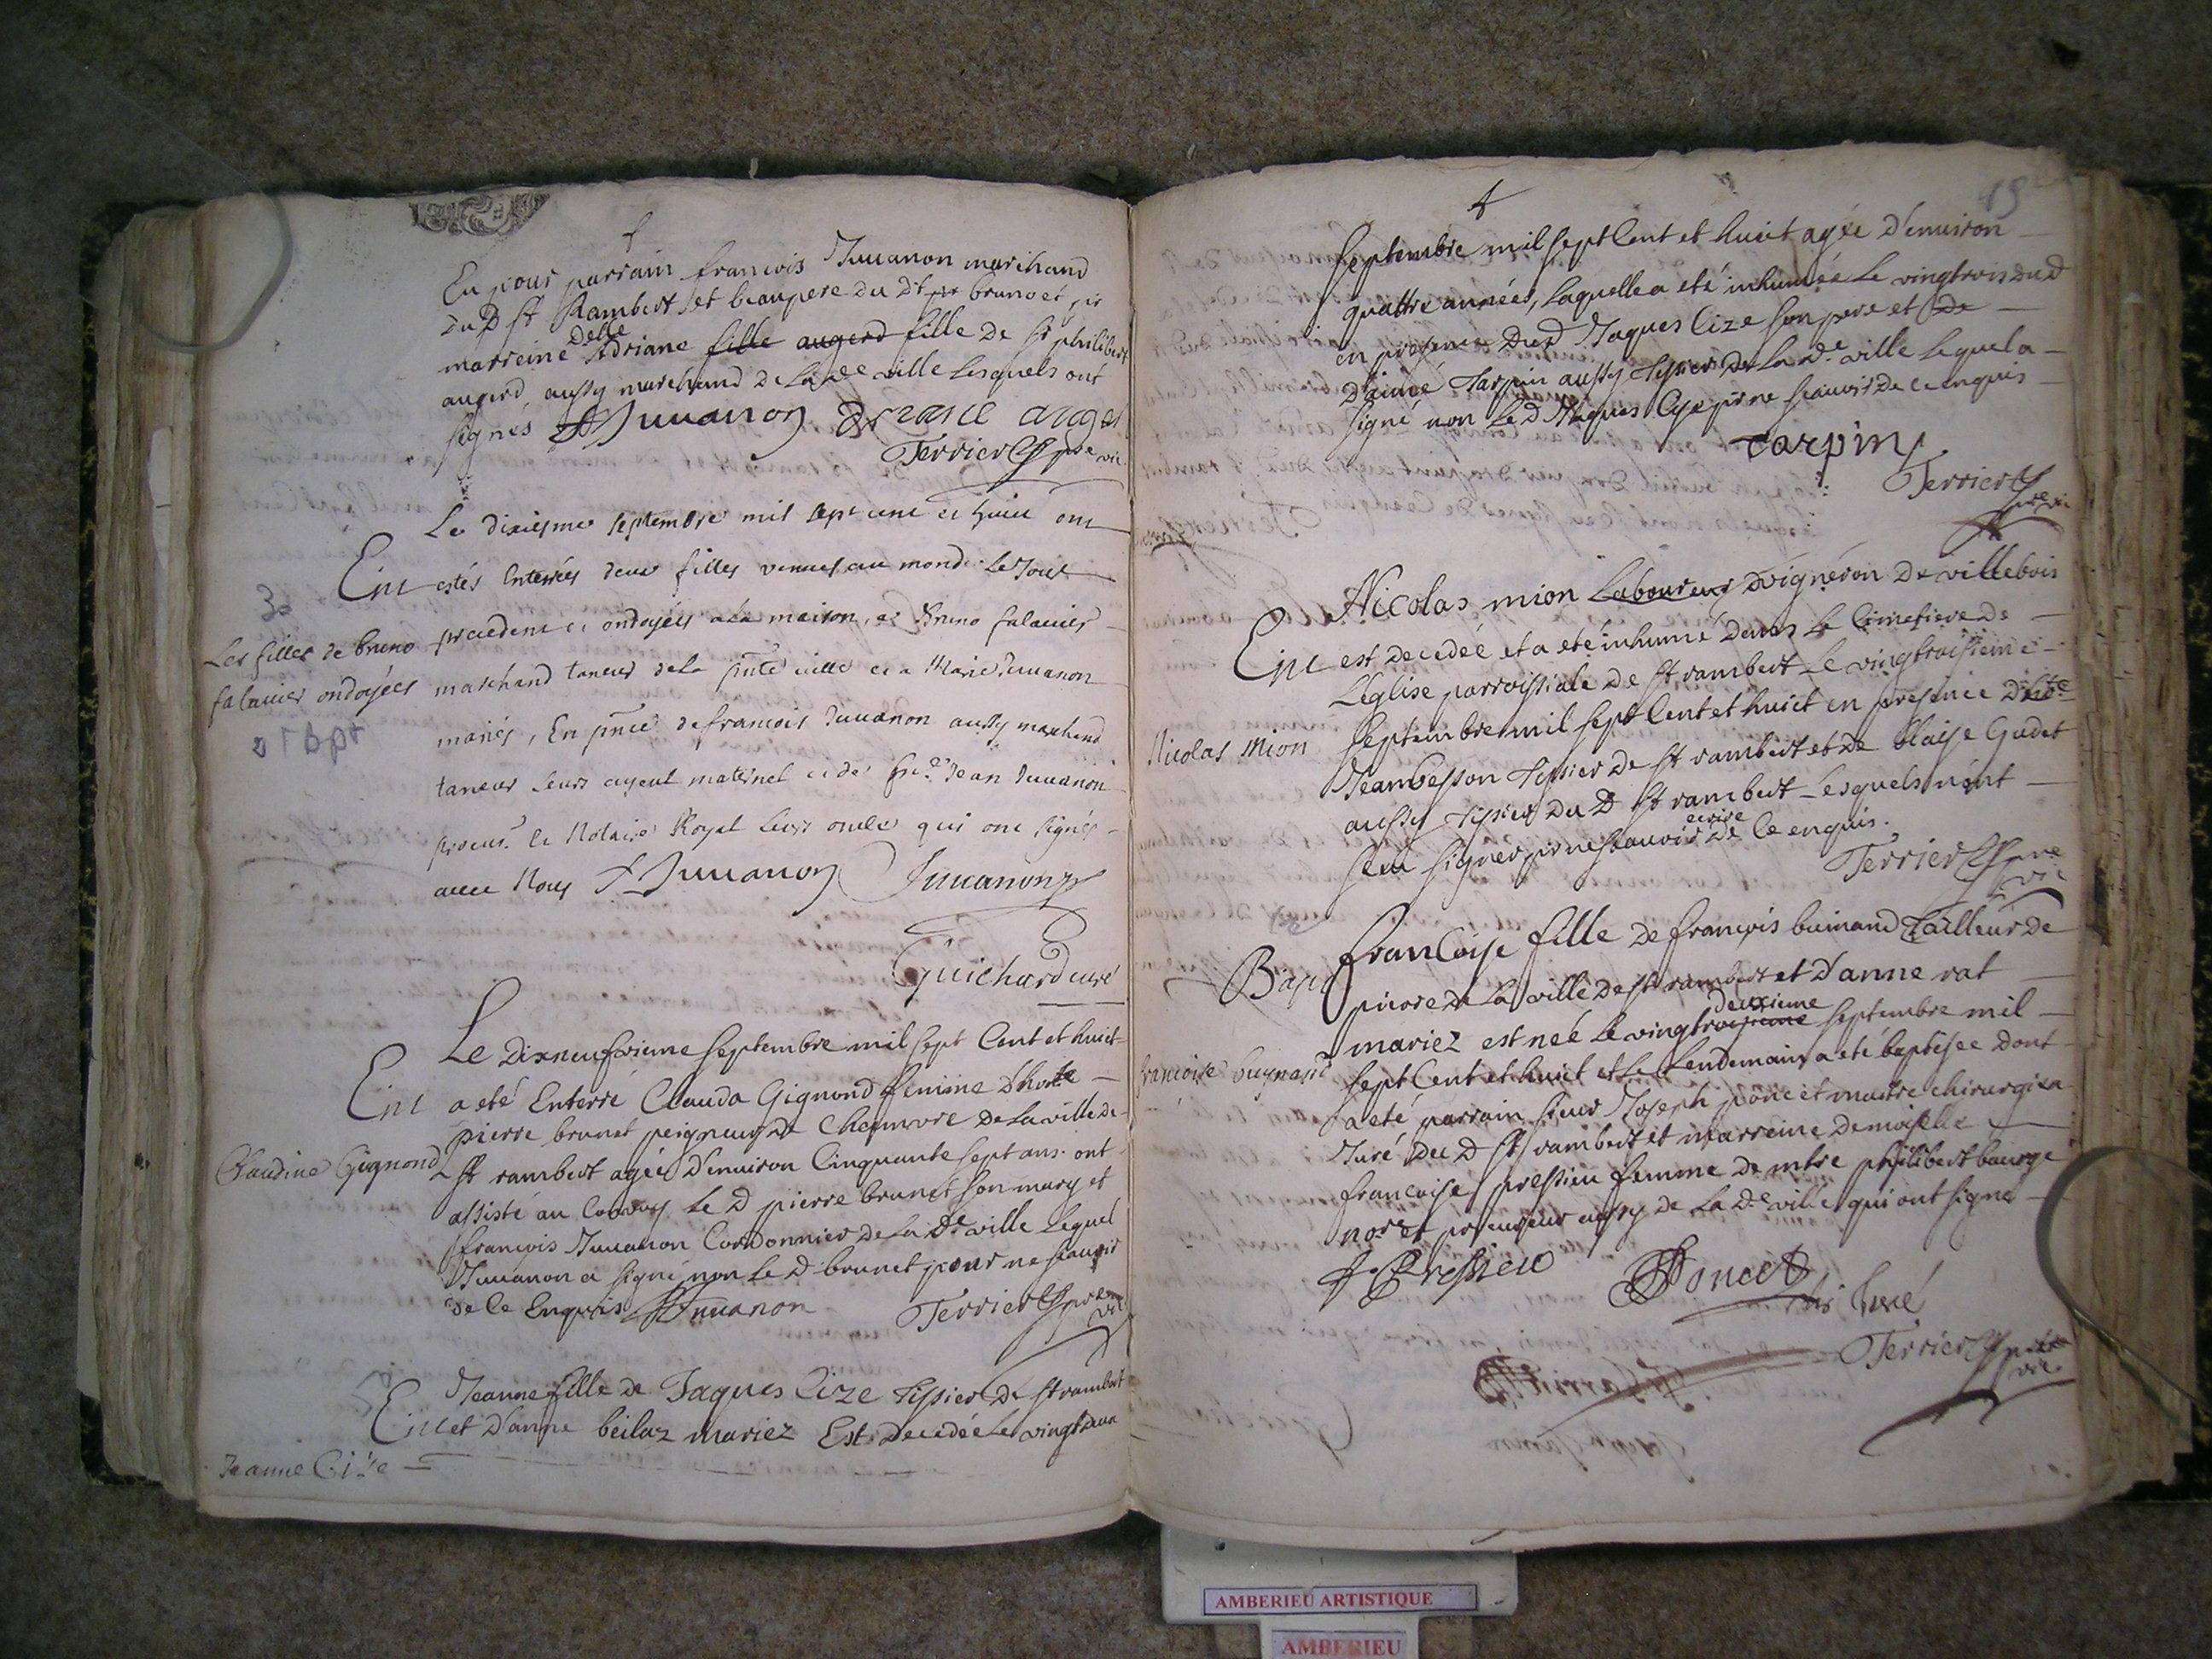 Eu pour parrain francois Juuanon marchand
du D St Rambert et beaupere du dt bruno et pr
marreine delle Adriane fille augerd fille de Sr philibert
augerd aussy marchand de la de ville Lesquels ont
signés Juuanon
Terrier pre vic.
Le dixiesme septembre mil sept cent et huict ont
Ent estés Enterrées deux filles venues au monde Le Jour
30
Les filles de bruno
falauier ondoyées
precedent et ondoyées a la maison, a Bruno falauier
marchand taneur de La pnte ville et a Marie Juuanon
mariés, En pnce de francois Juuanon aussy marchand
taneur leurs ayeul maternel et de Jean Juuanon
procur. et Notaire Royal Leurs oncle qui ont signés
auec Nous F Juuanon Juuanon
Guichard curé
Le Dixneufvieme septembre mil sept Cent et huict
Ent a eté Enterré Clauda Gignond femme d'hon.te
pierre brunet peigneur de Chanvre de la ville de
Claudine Gignond
St rambert agée d'enuiron Cinquante sept ans. ont
assisté au Convoy Le D pierre brunet son mary et
françois Juuanon Cordonnier de la De ville Lequel
Juuanon a signé non Le D. brunet pour ne scauoir
de Ce Enquis Juuanon Terrier pre vic
Jeanne fille de Jaques Cize tissier De St rambert
Ent et D'anne beilaz mariez Est decedée Le vingt deux
Jeanne Cize
15
septembre mil sept Cent et huict agée d'enuiron
quattre années, Laquelle a eté inhumée Le vingtrois dud
en presence Dud Jaques Cize son pere et De
D'aimé tarpin aussy tissier de La d.e ville Lequel a
signé non Le d Jaques Cize pr ne scauoir de ce enquis
tarpin
Terrier pre vic
Nicolas mion Laboureur vigneron De villebois
Ent est decedée et a eté inhumé dans Le Cimetiere de
L'église parroissiale de St rambert Le vingtroisieme
Nicolas Mion
septembre mil sept Cent et huict en presence D'h.te
Jean besson tissier de St rambert et de blaise Gudet
aussy tissier du D St rambert Lesquels n'ont
sçu signer pr ne scauoir ecrire de Ce enquis.
Terrier pre vic
Bapt
francoise fille de françois buinand tailleur de
pierre de La ville de St rambert et D'anne rat
mariez est neé Le vingtroisieme deuxieme septembre mil
francoise buynand
sept Cent et huict et Le Lendemain a eté baptisee dont
a eté parrain sieur Joseph poncet maitre chirurgien
Juré du D St rambert et marreine demoiselle
francoise pressieu femme de mtre philibert baurge
nore et procureur aussy de La D.e ville qui ont signe
f. Pressieu Poncet
Juré
Terrier pre vic.
AMBERIEU ARTISTIQUE
AMBERIEU